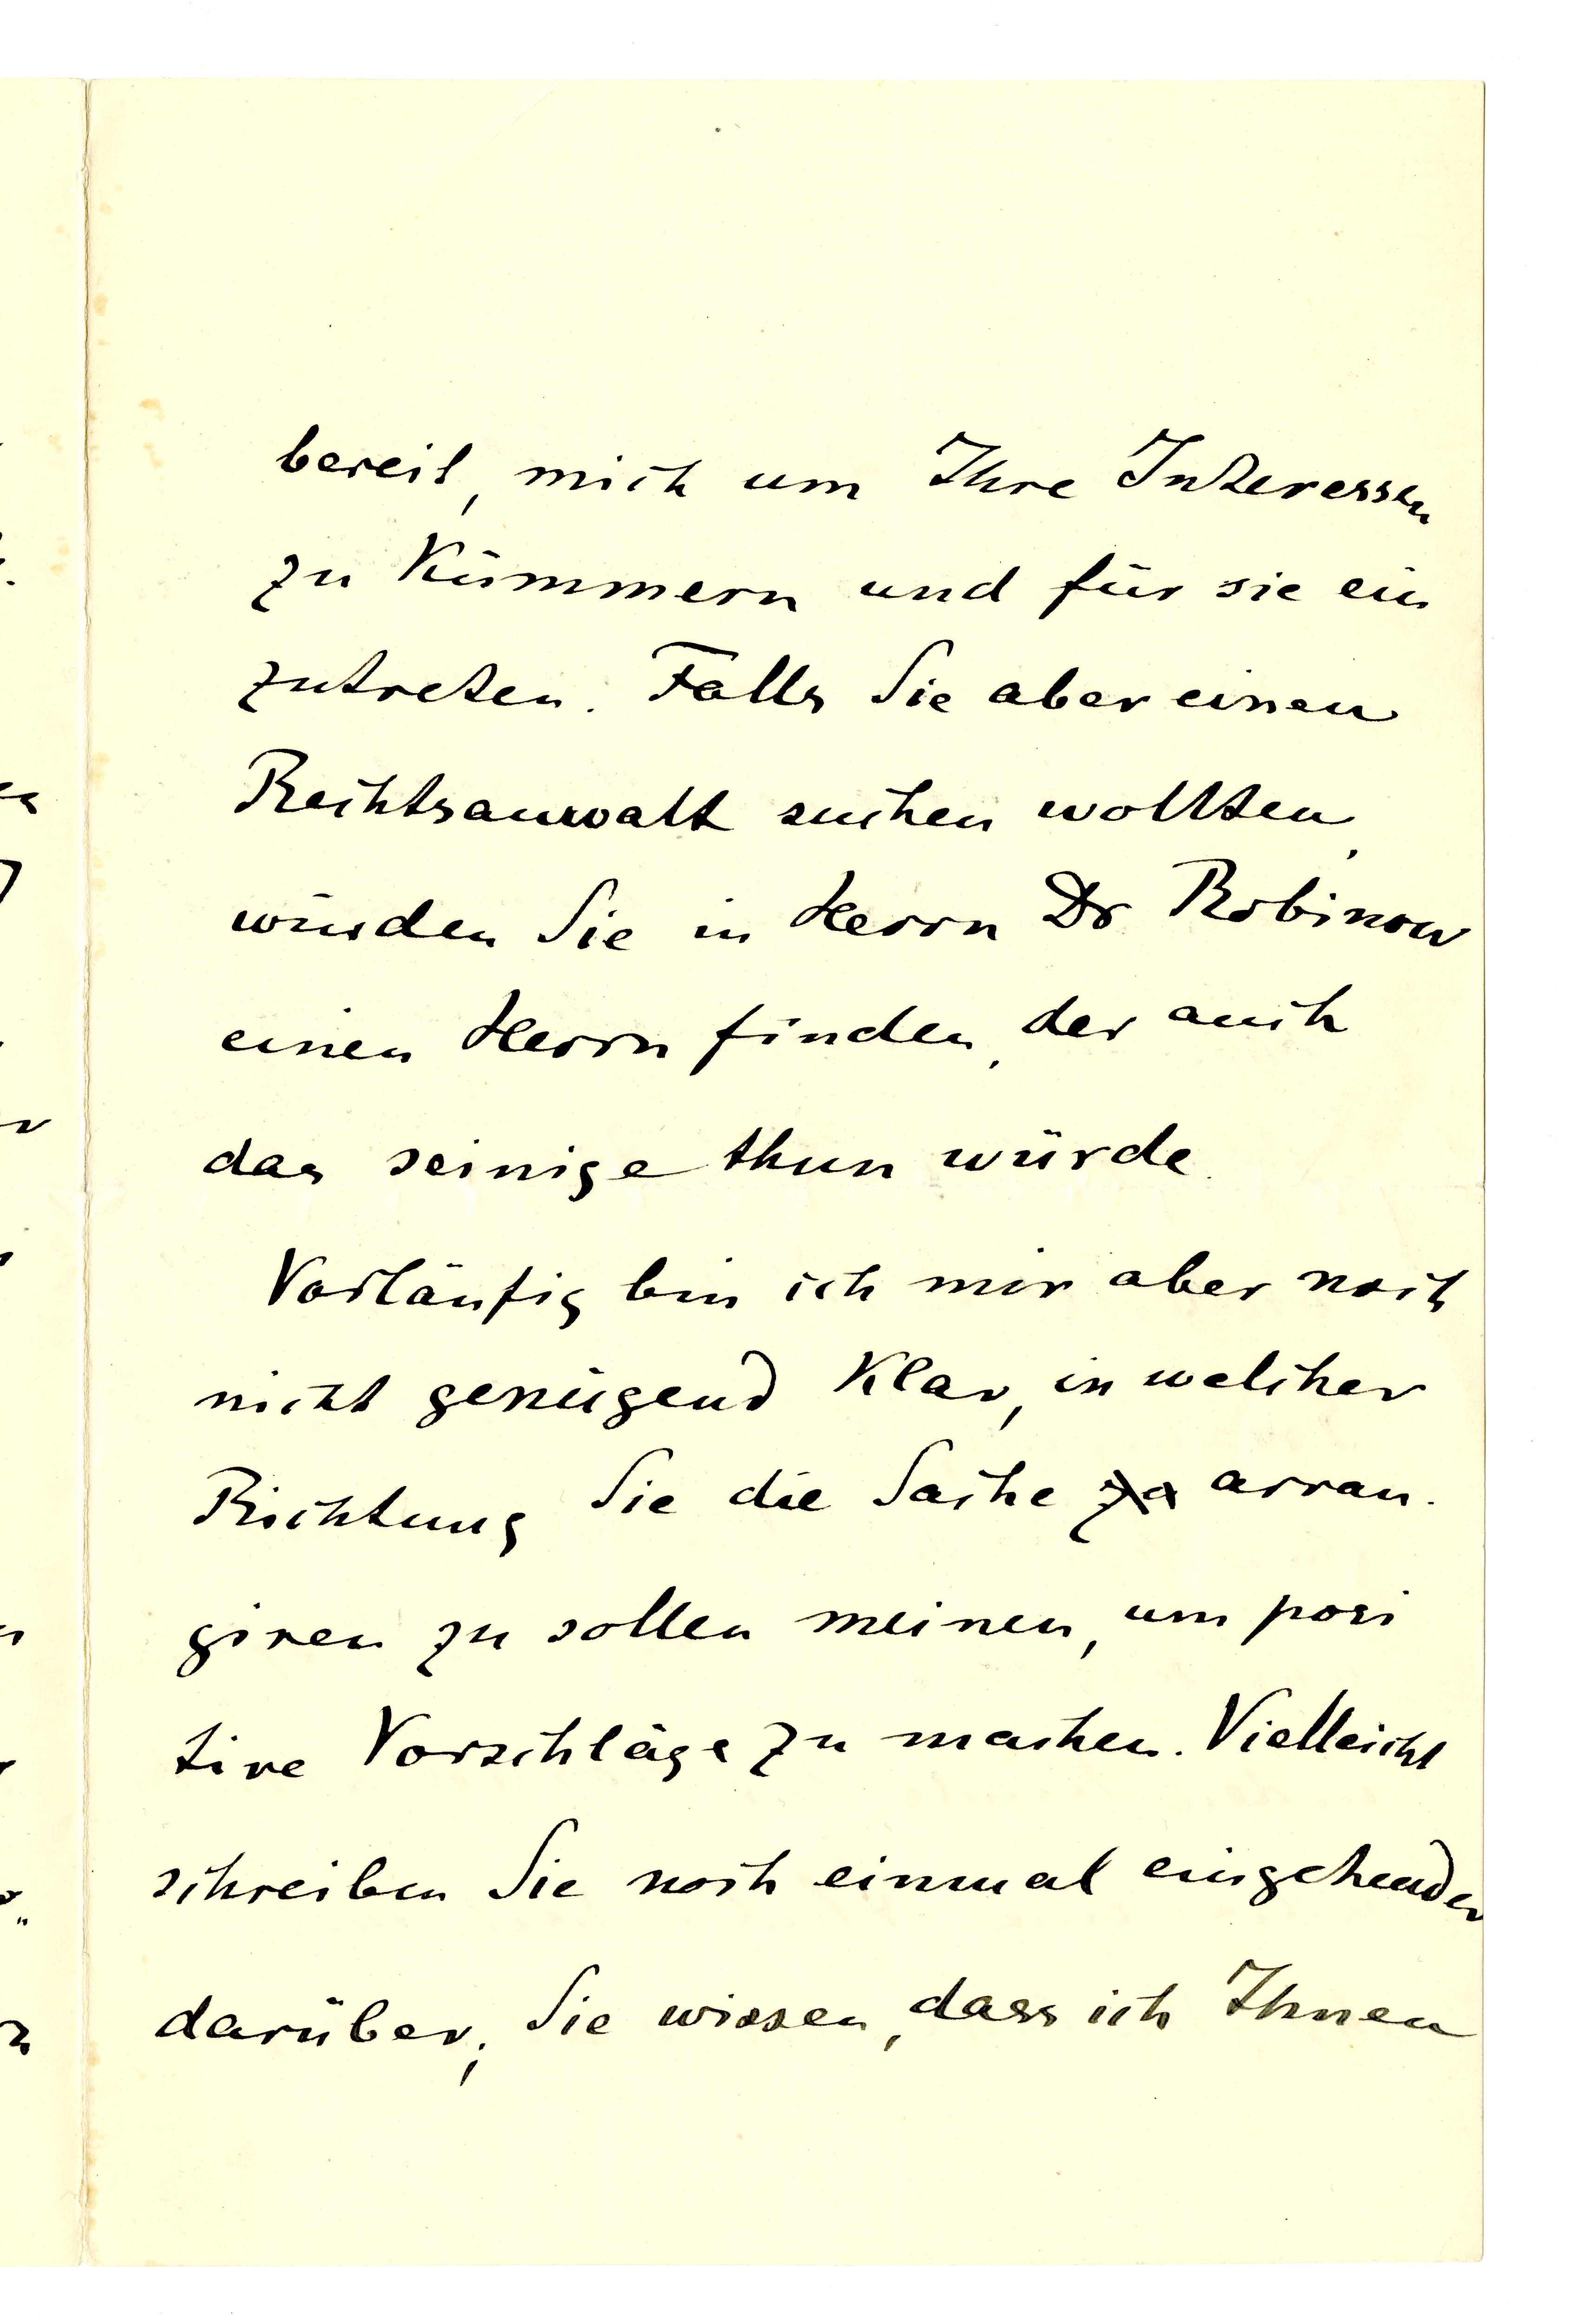 bereit, mich um Ihre Interessen
zu kümmern und für sie ein
zutreten. Falls Sie aber einen
Rechtsanwalt suchen wollten,
würden Sie in Herrn Dr Robinow
einen Herrn finden, der auch
das seinige thun würde.
Vorläufig bin ich mir aber noch
nicht genügend klar, in welcher
Richtung Sie die Sache zu arran-
giren zu sollen meinen, um posi
tive Vorschläge zu machen. Vielleicht
schreiben Sie noch einmal eingehender
darüber; Sie wissen, dass ich Ihnen